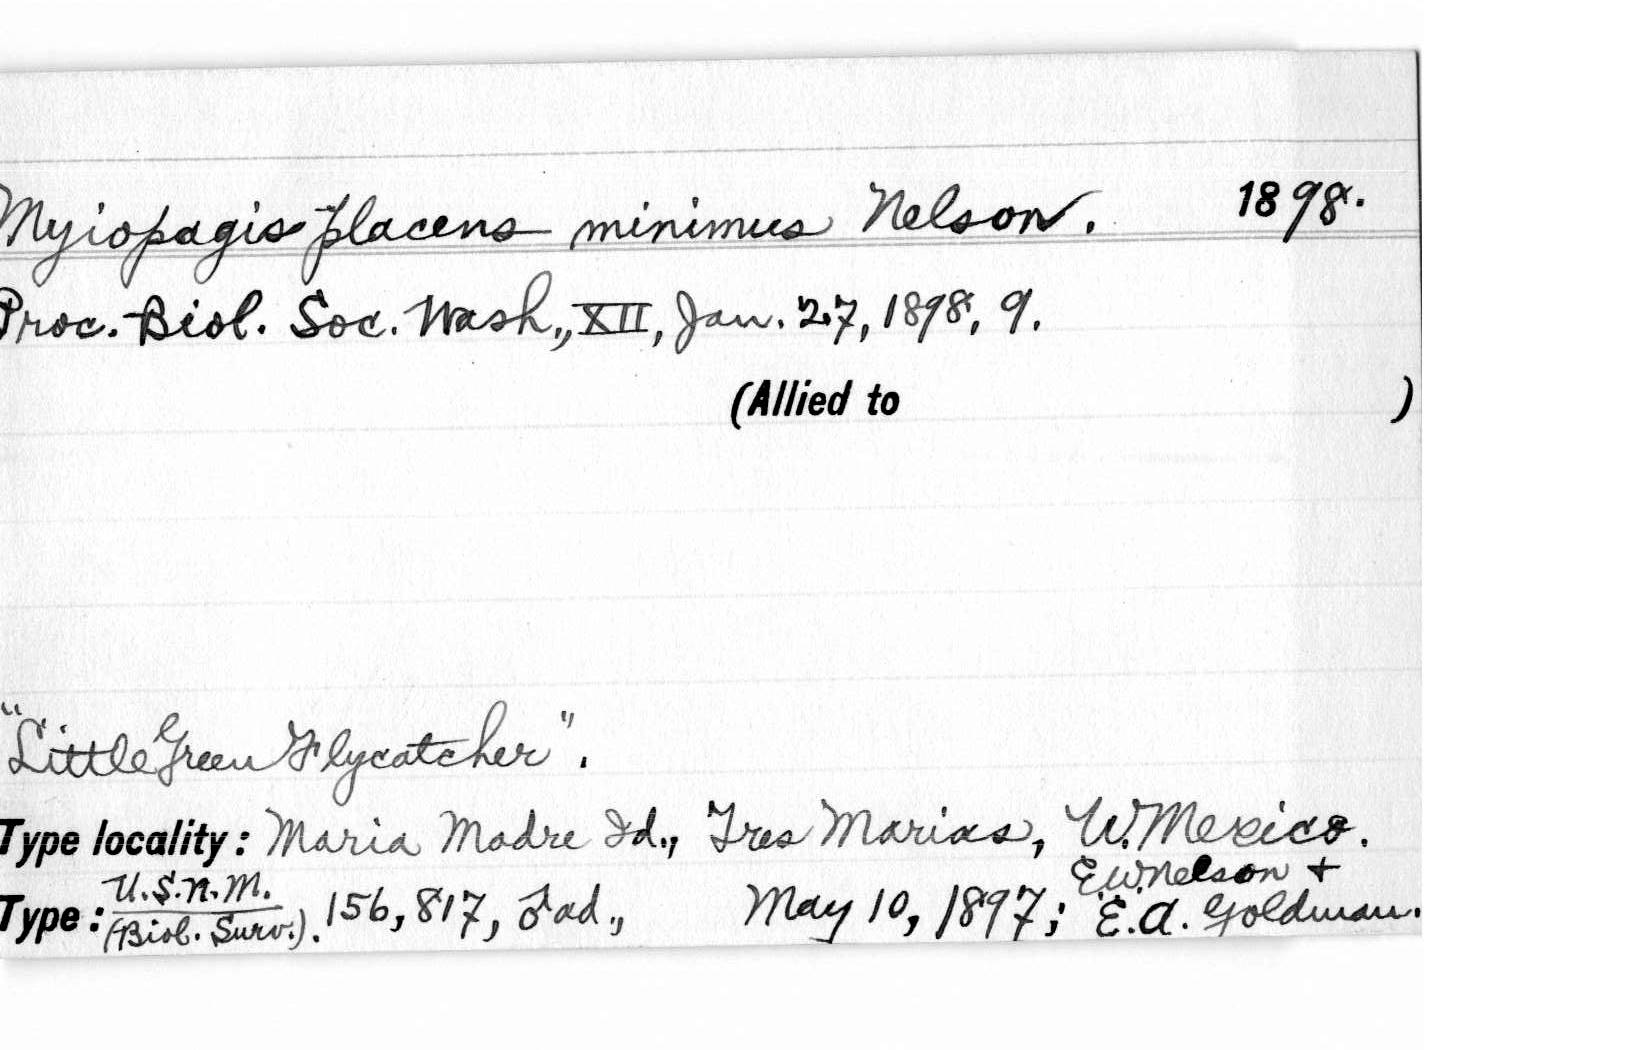 Myiopagis placens minimus Nelson. 1898.
Proc. Biol. Soc. Wash., XII, Jan. 27, 1898, 9.
(Allied to )
"Little Green Flycatcher".
Type locality: Maria Madre Id., Tres Marias, W. Mexico.
Type: U.S.N.M. (Biol. Surv.). 156,817, ♂ ad., May 10, 1897; E.W. Nelson + E.A. Goldman.